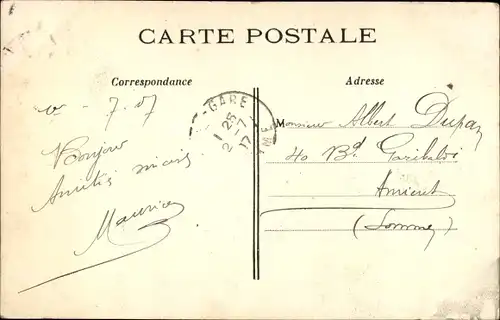 CARTE POSTALE
Correspondance
7.07
Bonjour
Amitiés
Maurice
GARE
25
-7
Adresse
Monsieur Albert
40 Bd Garibaldi
Amiens
(Somme)